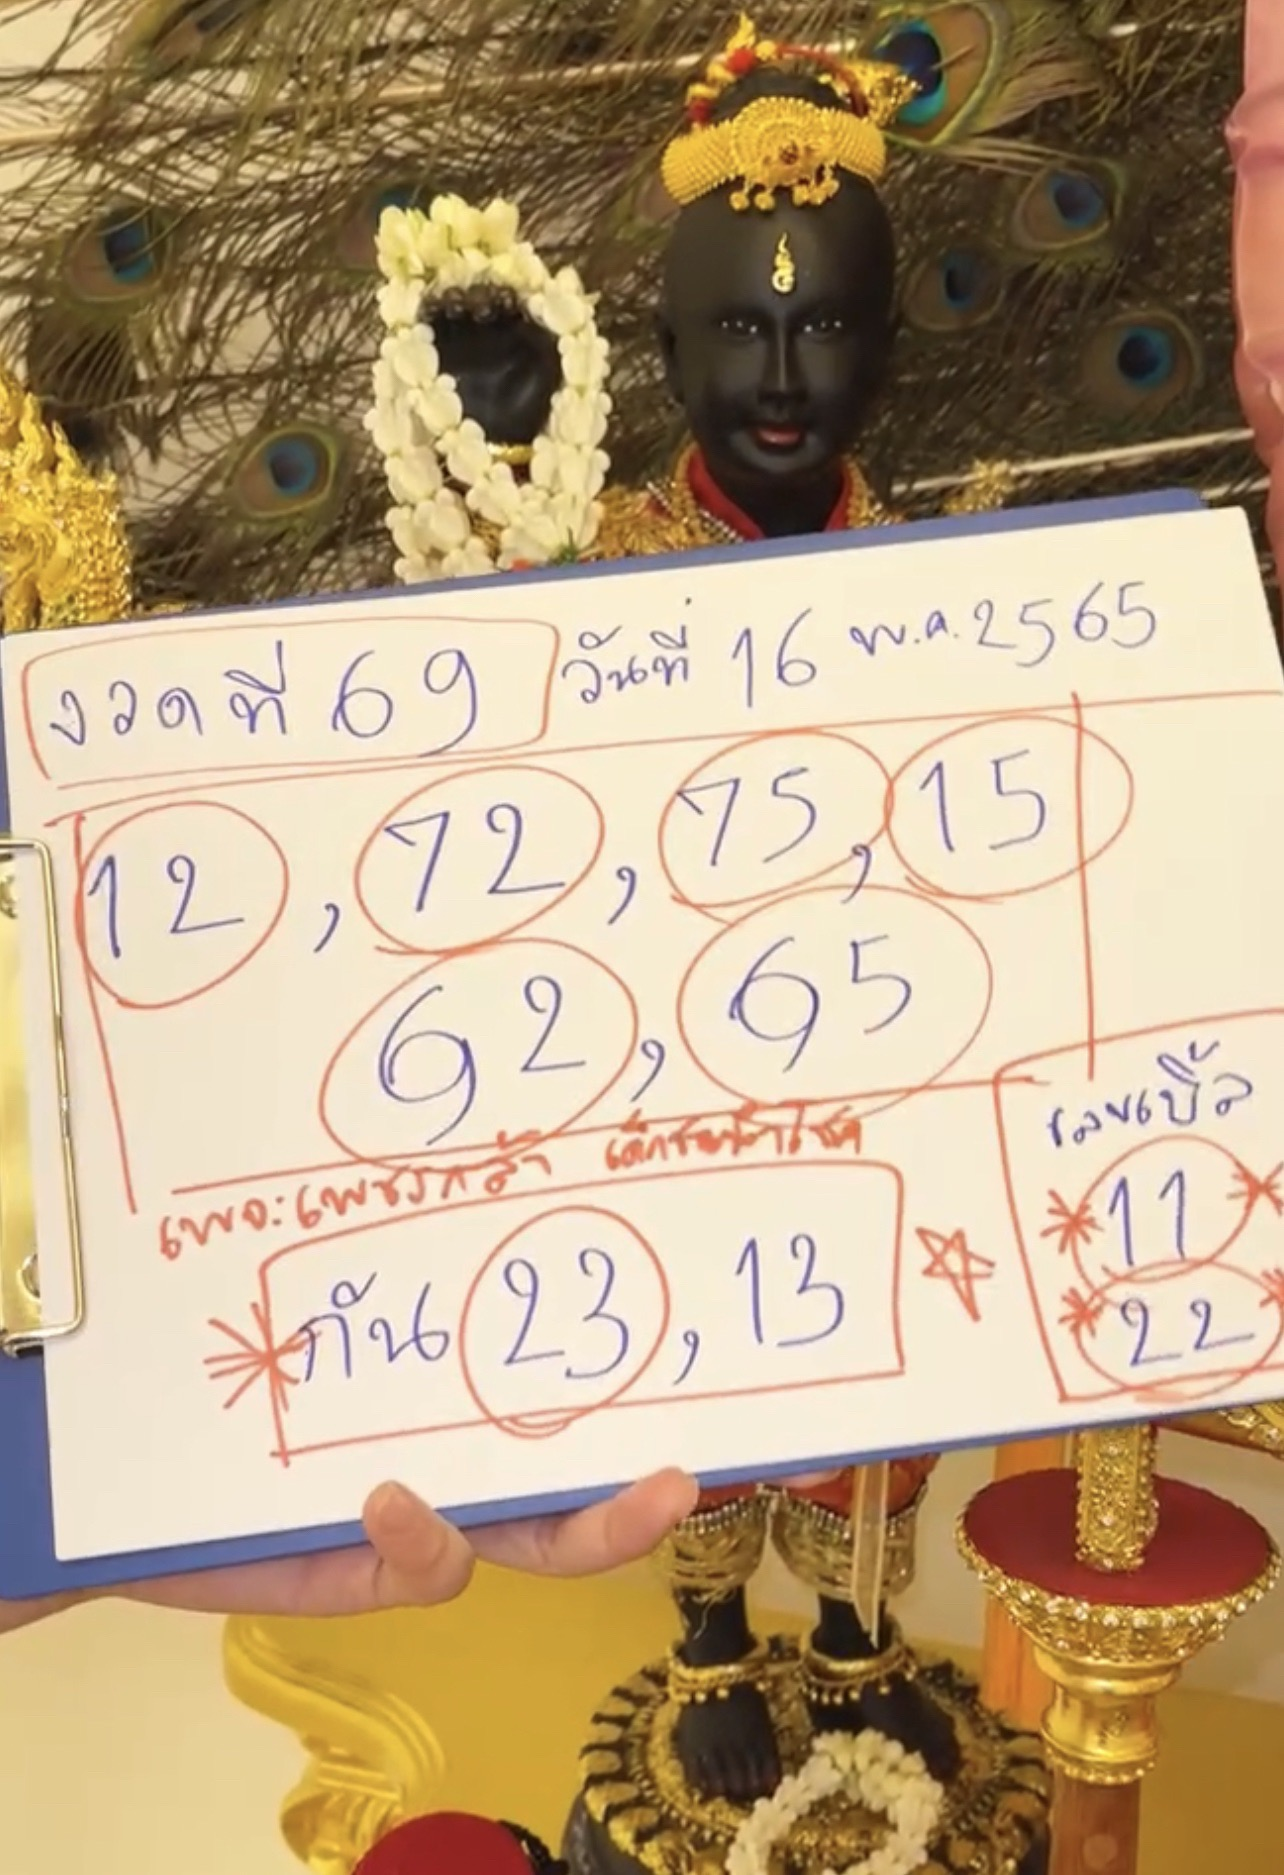 งวดที่ 69 วันที่ 16 พ.ค. 2565
12 , 72 , 75 , 15
62 , 65
เพอะเพชรกล้า เด็กชายนำโชค
กัน 23 , 13
เลขเบิ้ล
11
22